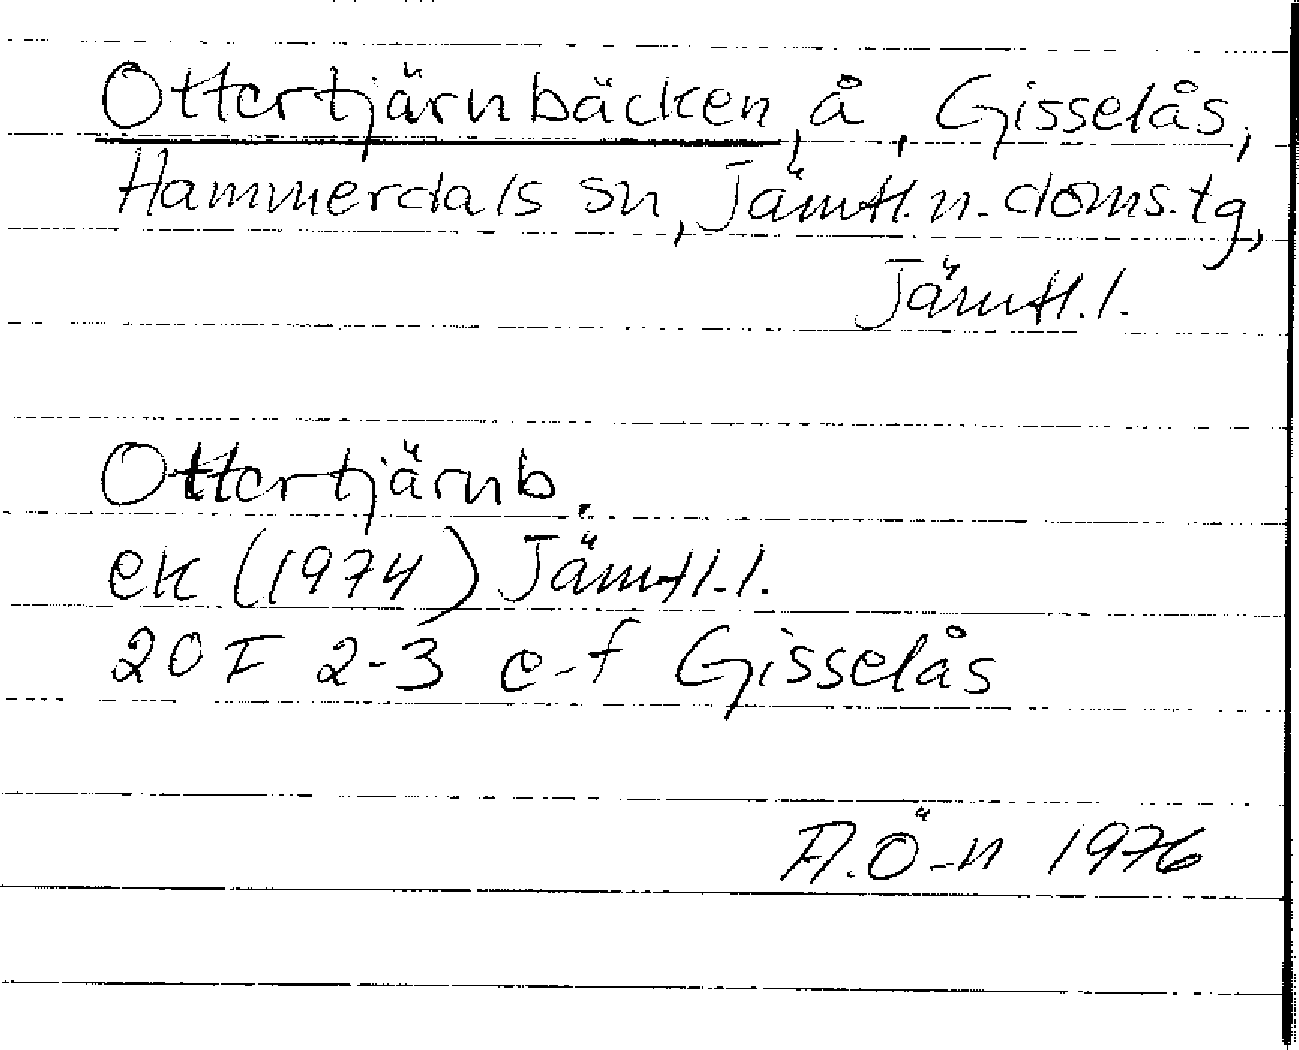 Ottertjärnbäcken, å, Gisselås,
Hammerdals sn, Jämtl.n.doms.tg,
Jämtl.l.
Ottertjärnb.
ek (1974) Jämtl.l.
20F 2-3 e-f Gisselås
A.Ö-n 1976